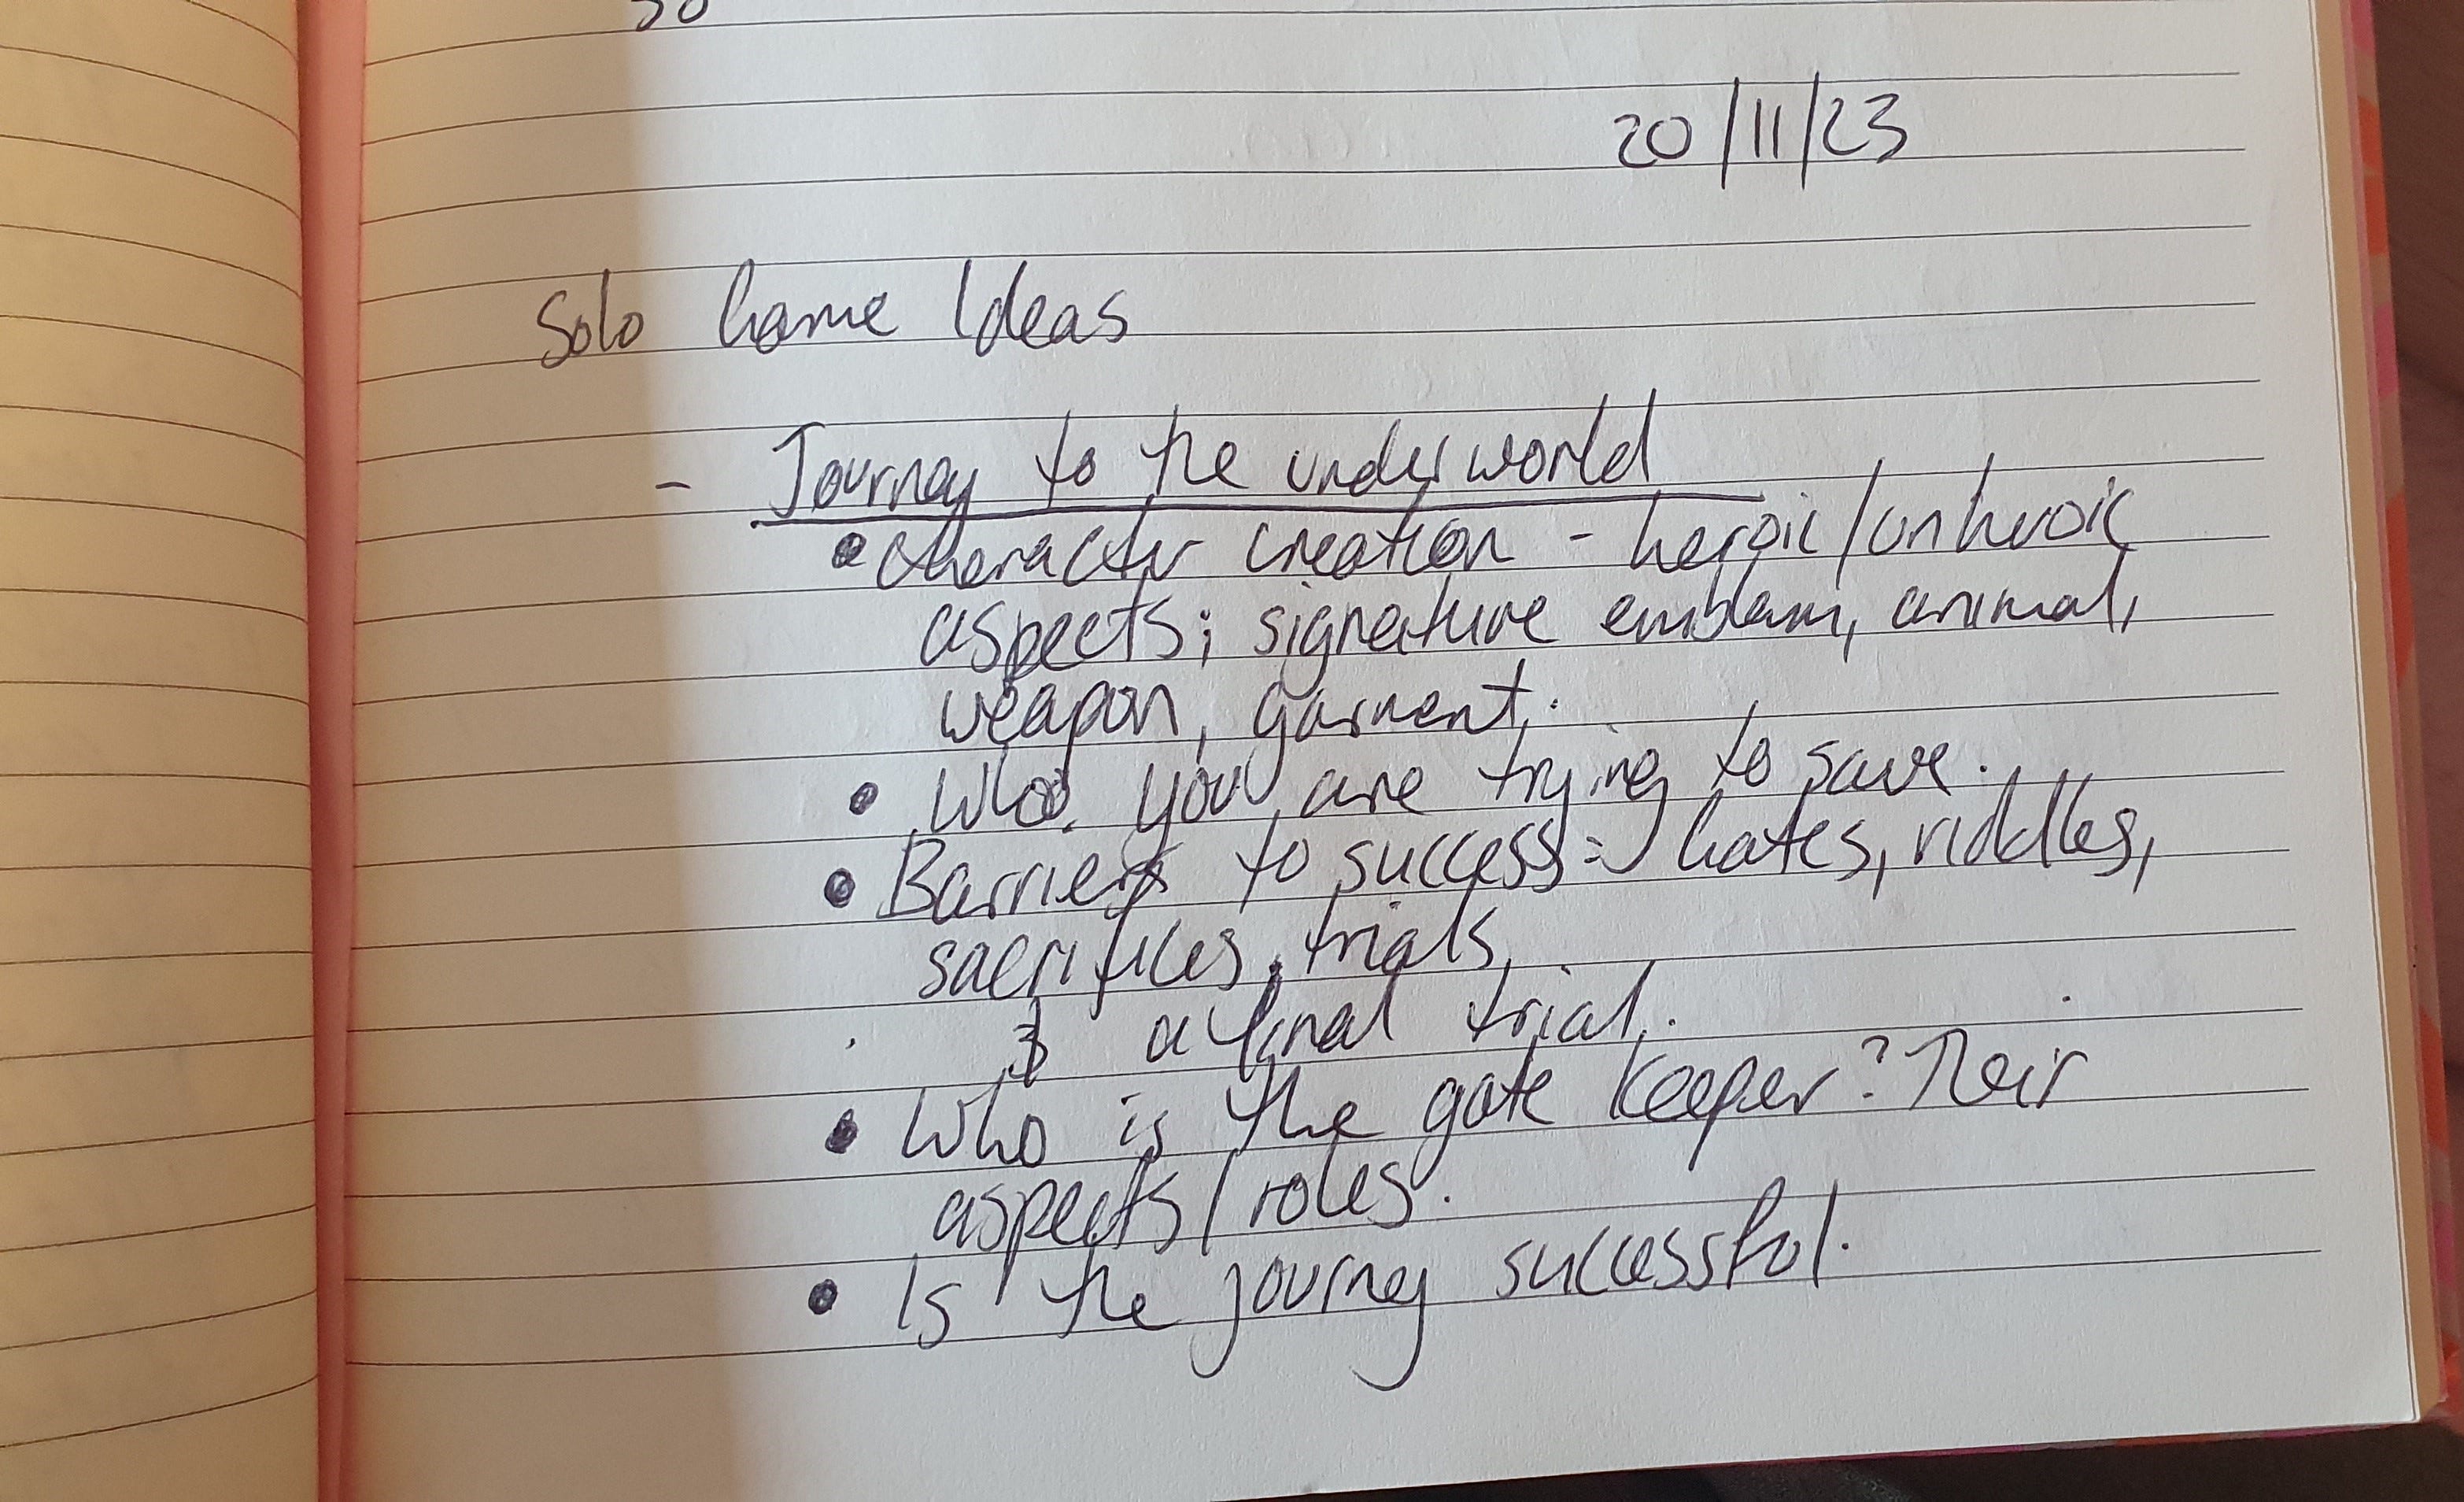 20/11/23
Solo Game Ideas
- Journey to the underworld
• Character creation - heroic/unheroic
aspects; signature emblem, animal,
weapon, garment.
• Who you are trying to save.
• Barriers to success: Gates, riddles,
sacrifices, trials,
& a final trial.
• Who is the gate keeper? Their
aspects/roles.
• Is the journey successful.